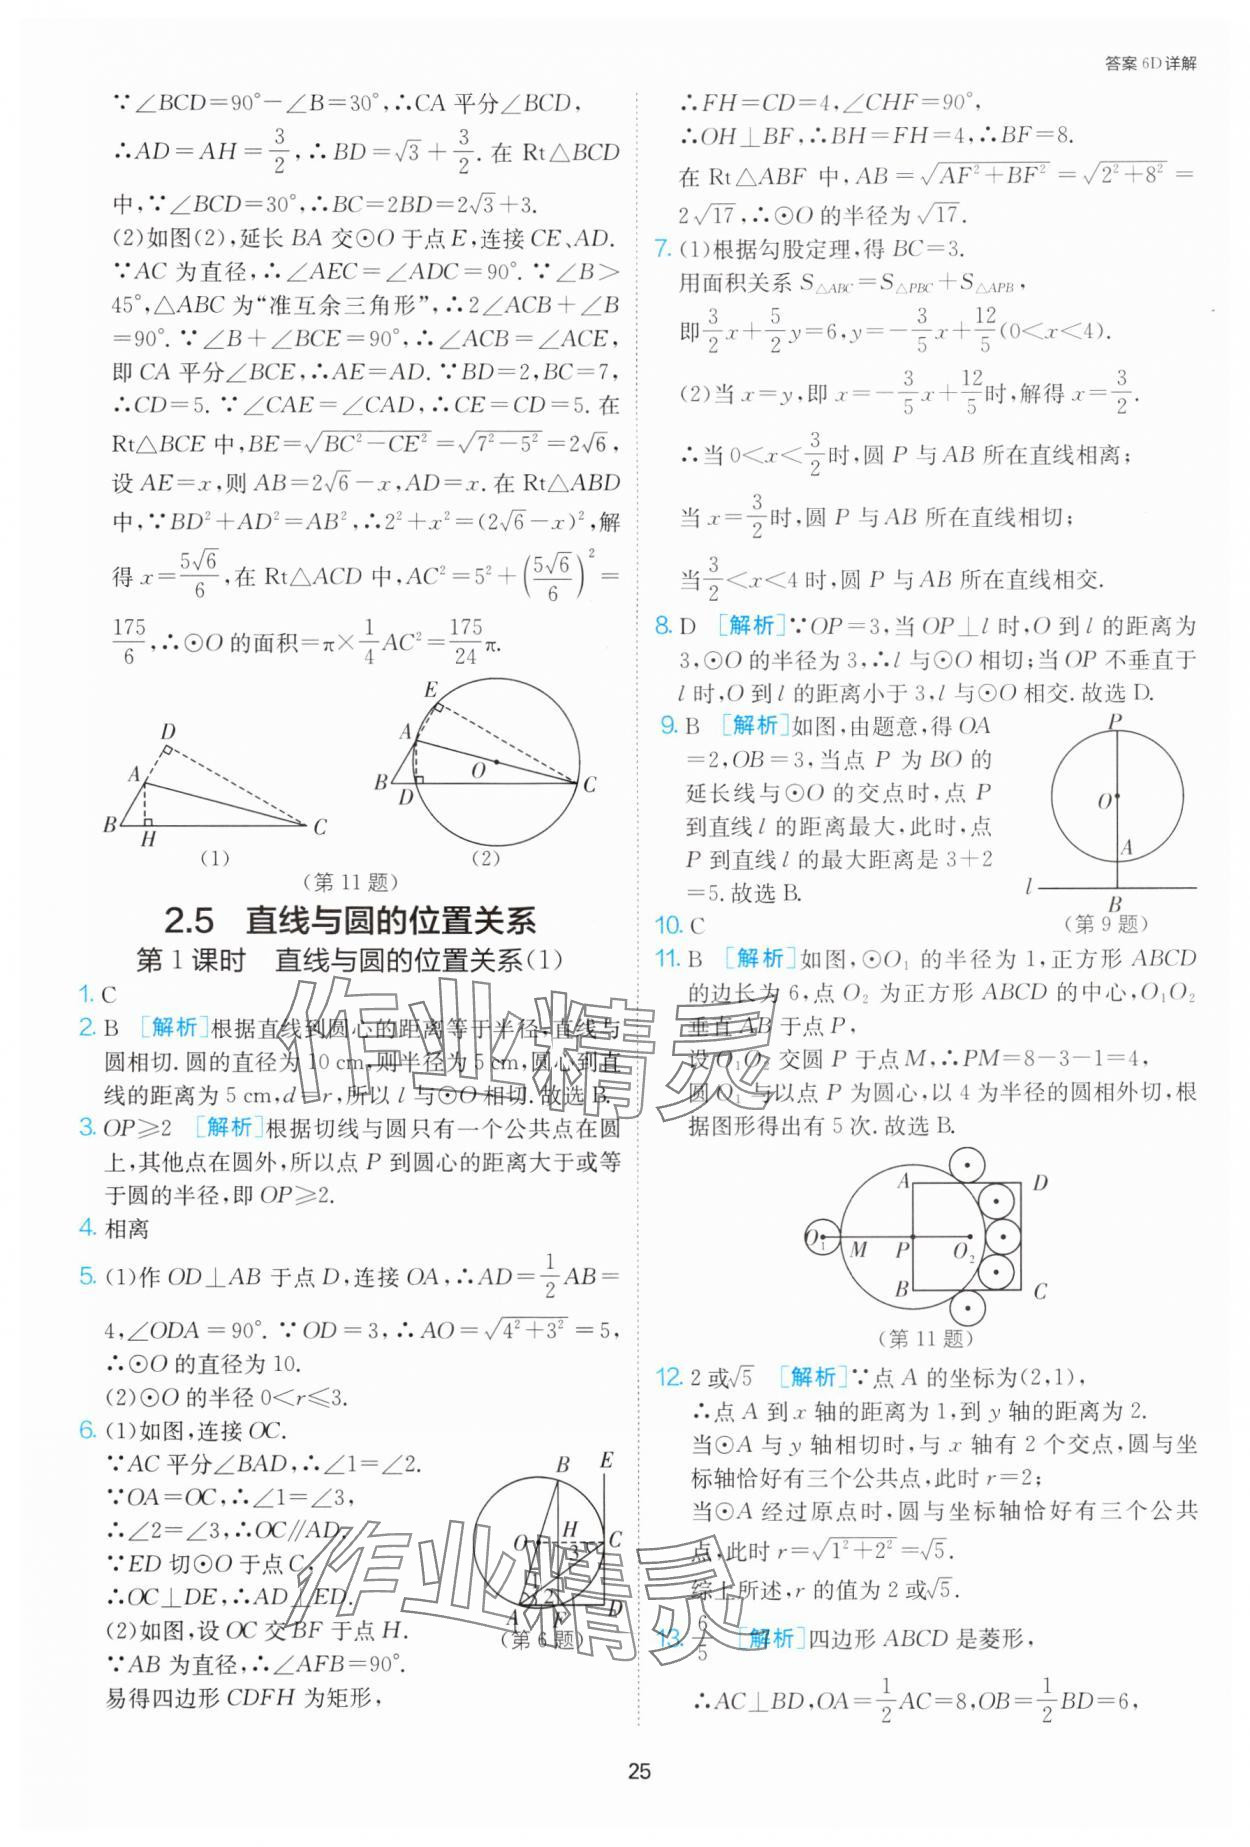 答案 6D详解
∵∠BCD=90°-∠B=30°,∴CA 平分∠BCD,
∴AD=AH=3/2,∴BD=√3+3/2.在 Rt△BCD
中,∵∠BCD=30°,∴BC=2BD=2√3+3.
(2)如图(2),延长 BA 交⊙O 于点 E,连接 CE、AD.
∵AC 为直径,∴∠AEC=∠ADC=90°.∵∠B>
45°,△ABC 为“准互余三角形”,∴2∠ACB+∠B
=90°.∵∠B+∠BCE=90°,∴∠ACB=∠ACE,
即 CA 平分∠BCE,∴AE=AD.∵BD=2,BC=7,
∴CD=5.∵∠CAE=∠CAD,∴CE=CD=5.在
Rt△BCE 中,BE=√(BC²-CE²)=√(7²-5²)=2√6,
设 AE=x,则 AB=2√6-x,AD=x.在 Rt△ABD
中,∵BD²+AD²=AB²,∴2²+x²=(2√6-x)²,解
得 x=5√6/6,在 Rt△ACD 中,AC²=5²+(5√6/6)²=
175/6,∴⊙O 的面积=π×1/4AC²=175/24π.
D
A
B
H
C
(1)
E
A
O
B
D
C
(2)
(第 11 题)
2.5 直线与圆的位置关系
第 1 课时 直线与圆的位置关系(1)
1. C
2. B [解析]根据直线到圆心的距离等于半径,直线与
圆相切.圆的直径为 10 cm,则半径为 5 cm,圆心到直
线的距离为 5 cm,d=r,所以 l 与⊙O 相切.故选 B.
3. OP≥2 [解析]根据切线与圆只有一个公共点在圆
上,其他点在圆外,所以点 P 到圆心的距离大于或等
于圆的半径,即 OP≥2.
4. 相离
5. (1)作 OD⊥AB 于点 D,连接 OA,∴AD=1/2AB=
4,∠ODA=90°.∵OD=3,∴AO=√(4²+3²)=5,
∴⊙O 的直径为 10.
(2)⊙O 的半径 0<r≤3.
6. (1)如图,连接 OC.
∵AC 平分∠BAD,∴∠1=∠2.
∵OA=OC,∴∠1=∠3,
∴∠2=∠3,∴OC∥AD.
∵ED 切⊙O 于点 C,
∴OC⊥DE,∴AD⊥ED.
(2)如图,设 OC 交 BF 于点 H.
∵AB 为直径,∴∠AFB=90°.
易得四边形 CDFH 为矩形,
B
E
O
H
C
3
1
2
A
F
D
(第 6 题)
∴FH=CD=4,∠CHF=90°,
∴OH⊥BF,∴BH=FH=4,∴BF=8.
在 Rt△ABF 中,AB=√(AF²+BF²)=√(2²+8²)=
2√17,∴⊙O 的半径为√17.
7. (1)根据勾股定理,得 BC=3.
用面积关系 S△ABC=S△PBC+S△APB,
即3/2x+5/2y=6,y=-3/5x+12/5(0<x<4).
(2)当 x=y,即 x=-3/5x+12/5时,解得 x=3/2.
∴当 0<x<3/2时,圆 P 与 AB 所在直线相离;
当 x=3/2时,圆 P 与 AB 所在直线相切;
当3/2<x<4 时,圆 P 与 AB 所在直线相交.
8. D [解析]∵OP=3,当 OP⊥l 时,O 到 l 的距离为
3,⊙O 的半径为 3,∴l 与⊙O 相切;当 OP 不垂直于
l 时,O 到 l 的距离小于 3,l 与⊙O 相交.故选 D.
9. B [解析]如图,由题意,得 OA
=2,OB=3,当点 P 为 BO 的
延长线与⊙O 的交点时,点 P
到直线 l 的距离最大,此时,点
P 到直线 l 的最大距离是 3+2
=5.故选 B.
P
O
A
l
B
(第 9 题)
10. C
11. B [解析]如图,⊙O₁ 的半径为 1,正方形 ABCD
的边长为 6,点 O₂ 为正方形 ABCD 的中心,O₁O₂
垂直 AB 于点 P,
设 O₁O₂ 交圆 P 于点 M,∴PM=8-3-1=4,
圆 O₁ 与以点 P 为圆心,以 4 为半径的圆相外切,根
据图形得出有 5 次.故选 B.
A
D
O₁
M
P
O₂
B
C
(第 11 题)
12. 2 或√5 [解析]∵点 A 的坐标为(2,1),
∴点 A 到 x 轴的距离为 1,到 y 轴的距离为 2.
当⊙A 与 y 轴相切时,与 x 轴有 2 个交点,圆与坐
标轴恰好有三个公共点,此时 r=2;
当⊙A 经过原点时,圆与坐标轴恰好有三个公共
点,此时 r=√(1²+2²)=√5.
综上所述,r 的值为 2 或√5.
13. 6/5 [解析]四边形 ABCD 是菱形,
∴AC⊥BD,OA=1/2AC=8,OB=1/2BD=6,
25
作业精灵
作业精灵